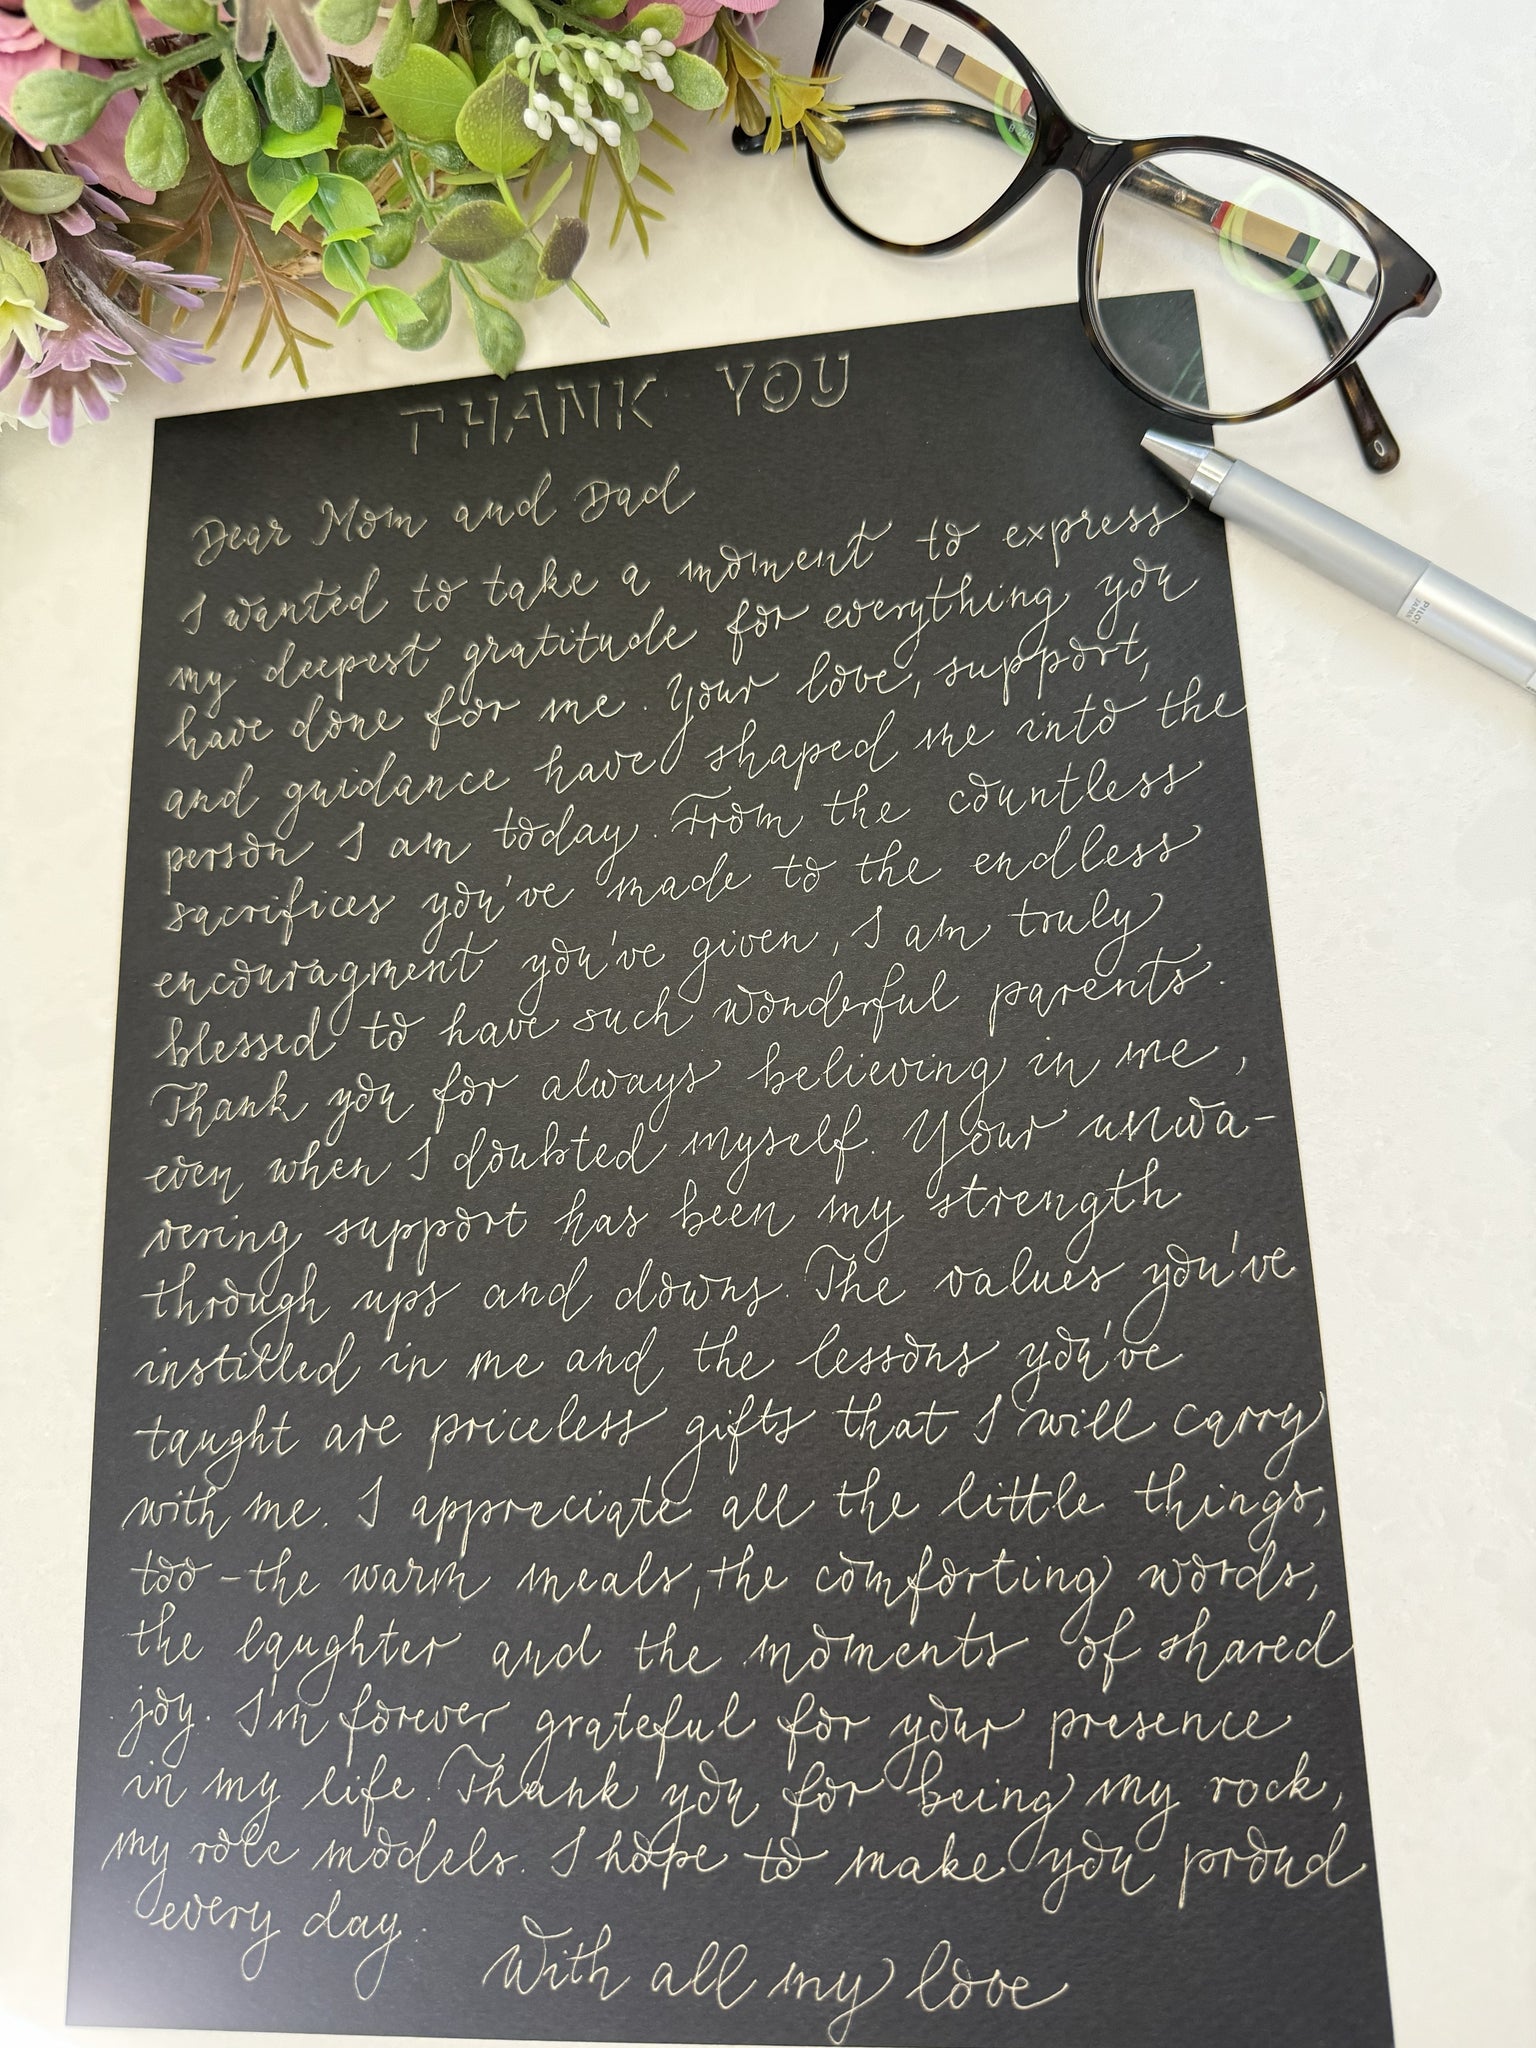 THANK YOU
Dear Mom and Dad
I wanted to take a moment to express
my deepest gratitude for everything you
have done for me. Your love, support,
and guidance have shaped me into the
person I am today. From the countless
sacrifices you've made to the endless
encouragment you've given, I am truly
blessed to have such wonderful parents.
Thank you for always believing in me,
even when I doubted myself. Your unwa-
vering support has been my strength
through ups and downs. The values you've
instilled in me and the lessons you've
taught are priceless gifts that I will carry
with me. I appreciate all the little things,
too - the warm meals, the comforting words,
the laughter and the moments of shared
joy. I'm forever grateful for your presence
in my life. Thank you for being my rock,
my role models. I hope to make you proud
every day.
With all my love
PILOT
JAPAN